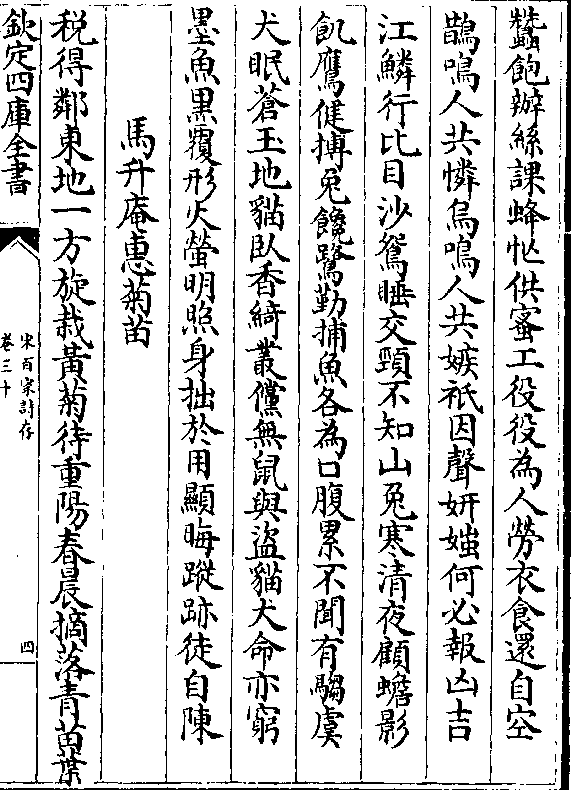 蠶飽辦絲課蜂忙供蜜工役役為人勞衣食還自空
鵲鳴人共憐烏鳴人共嫉祇因聲妍媸何必報凶吉
江鱗行比目沙鴛睡交頸不知山兔寒清夜顧蟾影
飢鷹健搏兔饞鷺勤捕魚各為口腹累不聞有騶虞
犬眠蒼玉地貓臥香綺叢儻無鼠與盜貓犬命亦窮
墨魚黒覆形火螢明照身拙於用顯晦蹤跡徒自陳
馬升庵惠菊苗
税得鄰東地一方旋栽黃菊待重陽春晨摘落青苗葉
欽定四庫全書
宋百家詩存
卷三十
四